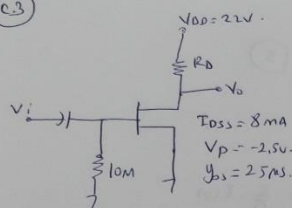 C.3
VDD = 22V.
RD
Vo
Vi
IDSS = 8mA
VP = -2.5V.
yos = 25µs.
10M